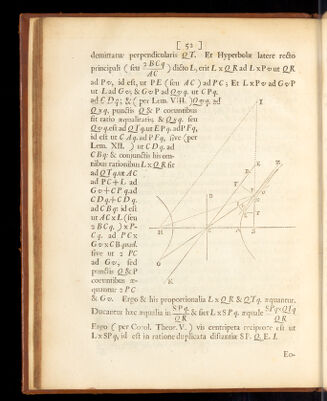 [ 52 ]
demittatur perpendicularis QT. Et Hyperbolæ latere recto
principali ( seu 2BCq / AC ) dicto L, erit L x QR ad L x Pv ut QR
ad Pv, id est, ut PE ( seu AC ) ad PC; Et L x Pv ad GvP
ut L ad Gv; & GvP ad Qvq. ut CPq.
ad CDq; & ( per Lem. VIII. ) Qvq. ad
Qxq. punctis Q & P coeuntibus
fit ratio æqualitatis; & Qxq. seu
Qvq. est ad QTq. ut EPq. ad PFq,
id est ut CAq. ad PFq, sive ( per
Lem. XII. ) ut CDq. ad
CBq: & conjunctis his om-
nibus rationibus L x QR fit
ad QTq. ut AC
ad PC + L ad
Gv + CPq. ad
CDq + CDq.
ad CBq: id est
ut AC x L ( seu
2BCq. ) x P-
Cq. ad PC x
Gv x CBquad.
sive ut 2PC
ad Gv, sed
punctis Q & P
coeuntibus æ-
quantur 2PC
& Gv. Ergo & his proportionalia L x QR & QTq. æquantur.
Ducantur hæc æqualia in SPq. / QR & fiet L x SPq. æquale SPq. x QTq / QR
Ergo ( per Corol. Theor. V. ) vis centripeta reciproce est ut
L x SPq, id est in ratione duplicata distantiæ SP. Q. E. I.
Eo-